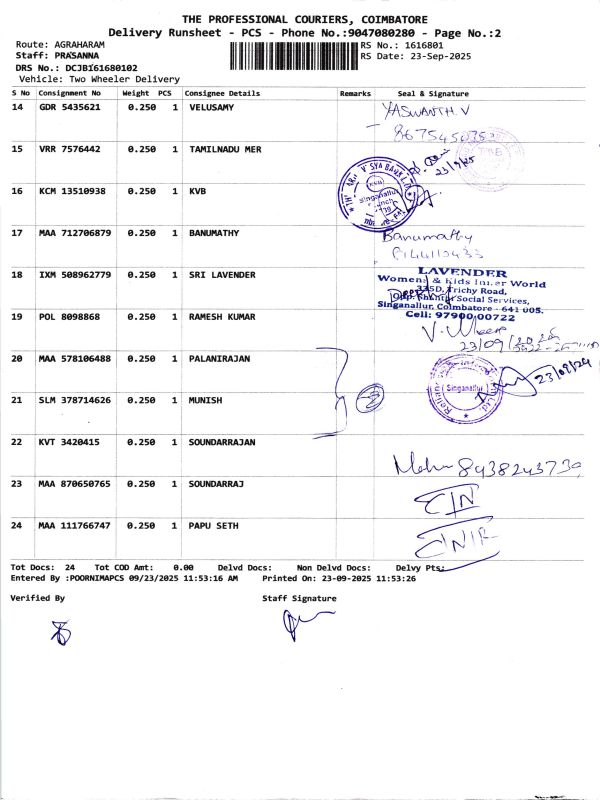 THE PROFESSIONAL COURIERS, COIMBATORE
Delivery Runsheet - PCS - Phone No.:9047080280 - Page No.:2
Route: AGRAHARAM RS No.: 1616801
Staff: PRASANNA RS Date: 23-Sep-2025
DRS No.: DCJB161680102
Vehicle: Two Wheeler Delivery
S No Consignment No Weight PCS Consignee Details Remarks Seal & Signature
14 GDR 5435621 0.250 1 VELUSAMY YASWANTH.V
15 VRR 7576442 0.250 1 TAMILNADU MER
23/9/25
16 KCM 13510938 0.250 1 KVB
Singanallur
17 MAA 712706879 0.250 1 BANUMATHY Banumathy
18 IXM 508962779 0.250 1 SRI LAVENDER LAVENDER
Women & Kids Inner World
335D, Trichy Road,
Opp. Shanthi Social Services,
Singanallur, Coimbatore - 641 005.
Cell: 97900 00722
19 POL 8098868 0.250 1 RAMESH KUMAR
23/09/2025
20 MAA 578106488 0.250 1 PALANIRAJAN
(Singanallur)
23/09/24
21 SLM 378714626 0.250 1 MUNISH
22 KVT 3420415 0.250 1 SOUNDARRAJAN
8438243739
23 MAA 870650765 0.250 1 SOUNDARRAJ
24 MAA 111766747 0.250 1 PAPU SETH
Tot Docs: 24 Tot COD Amt: 0.00 Delvd Docs: Non Delvd Docs: Delvy Pts:
Entered By :POORNIMAPCS 09/23/2025 11:53:16 AM Printed On: 23-09-2025 11:53:26
Verified By Staff Signature